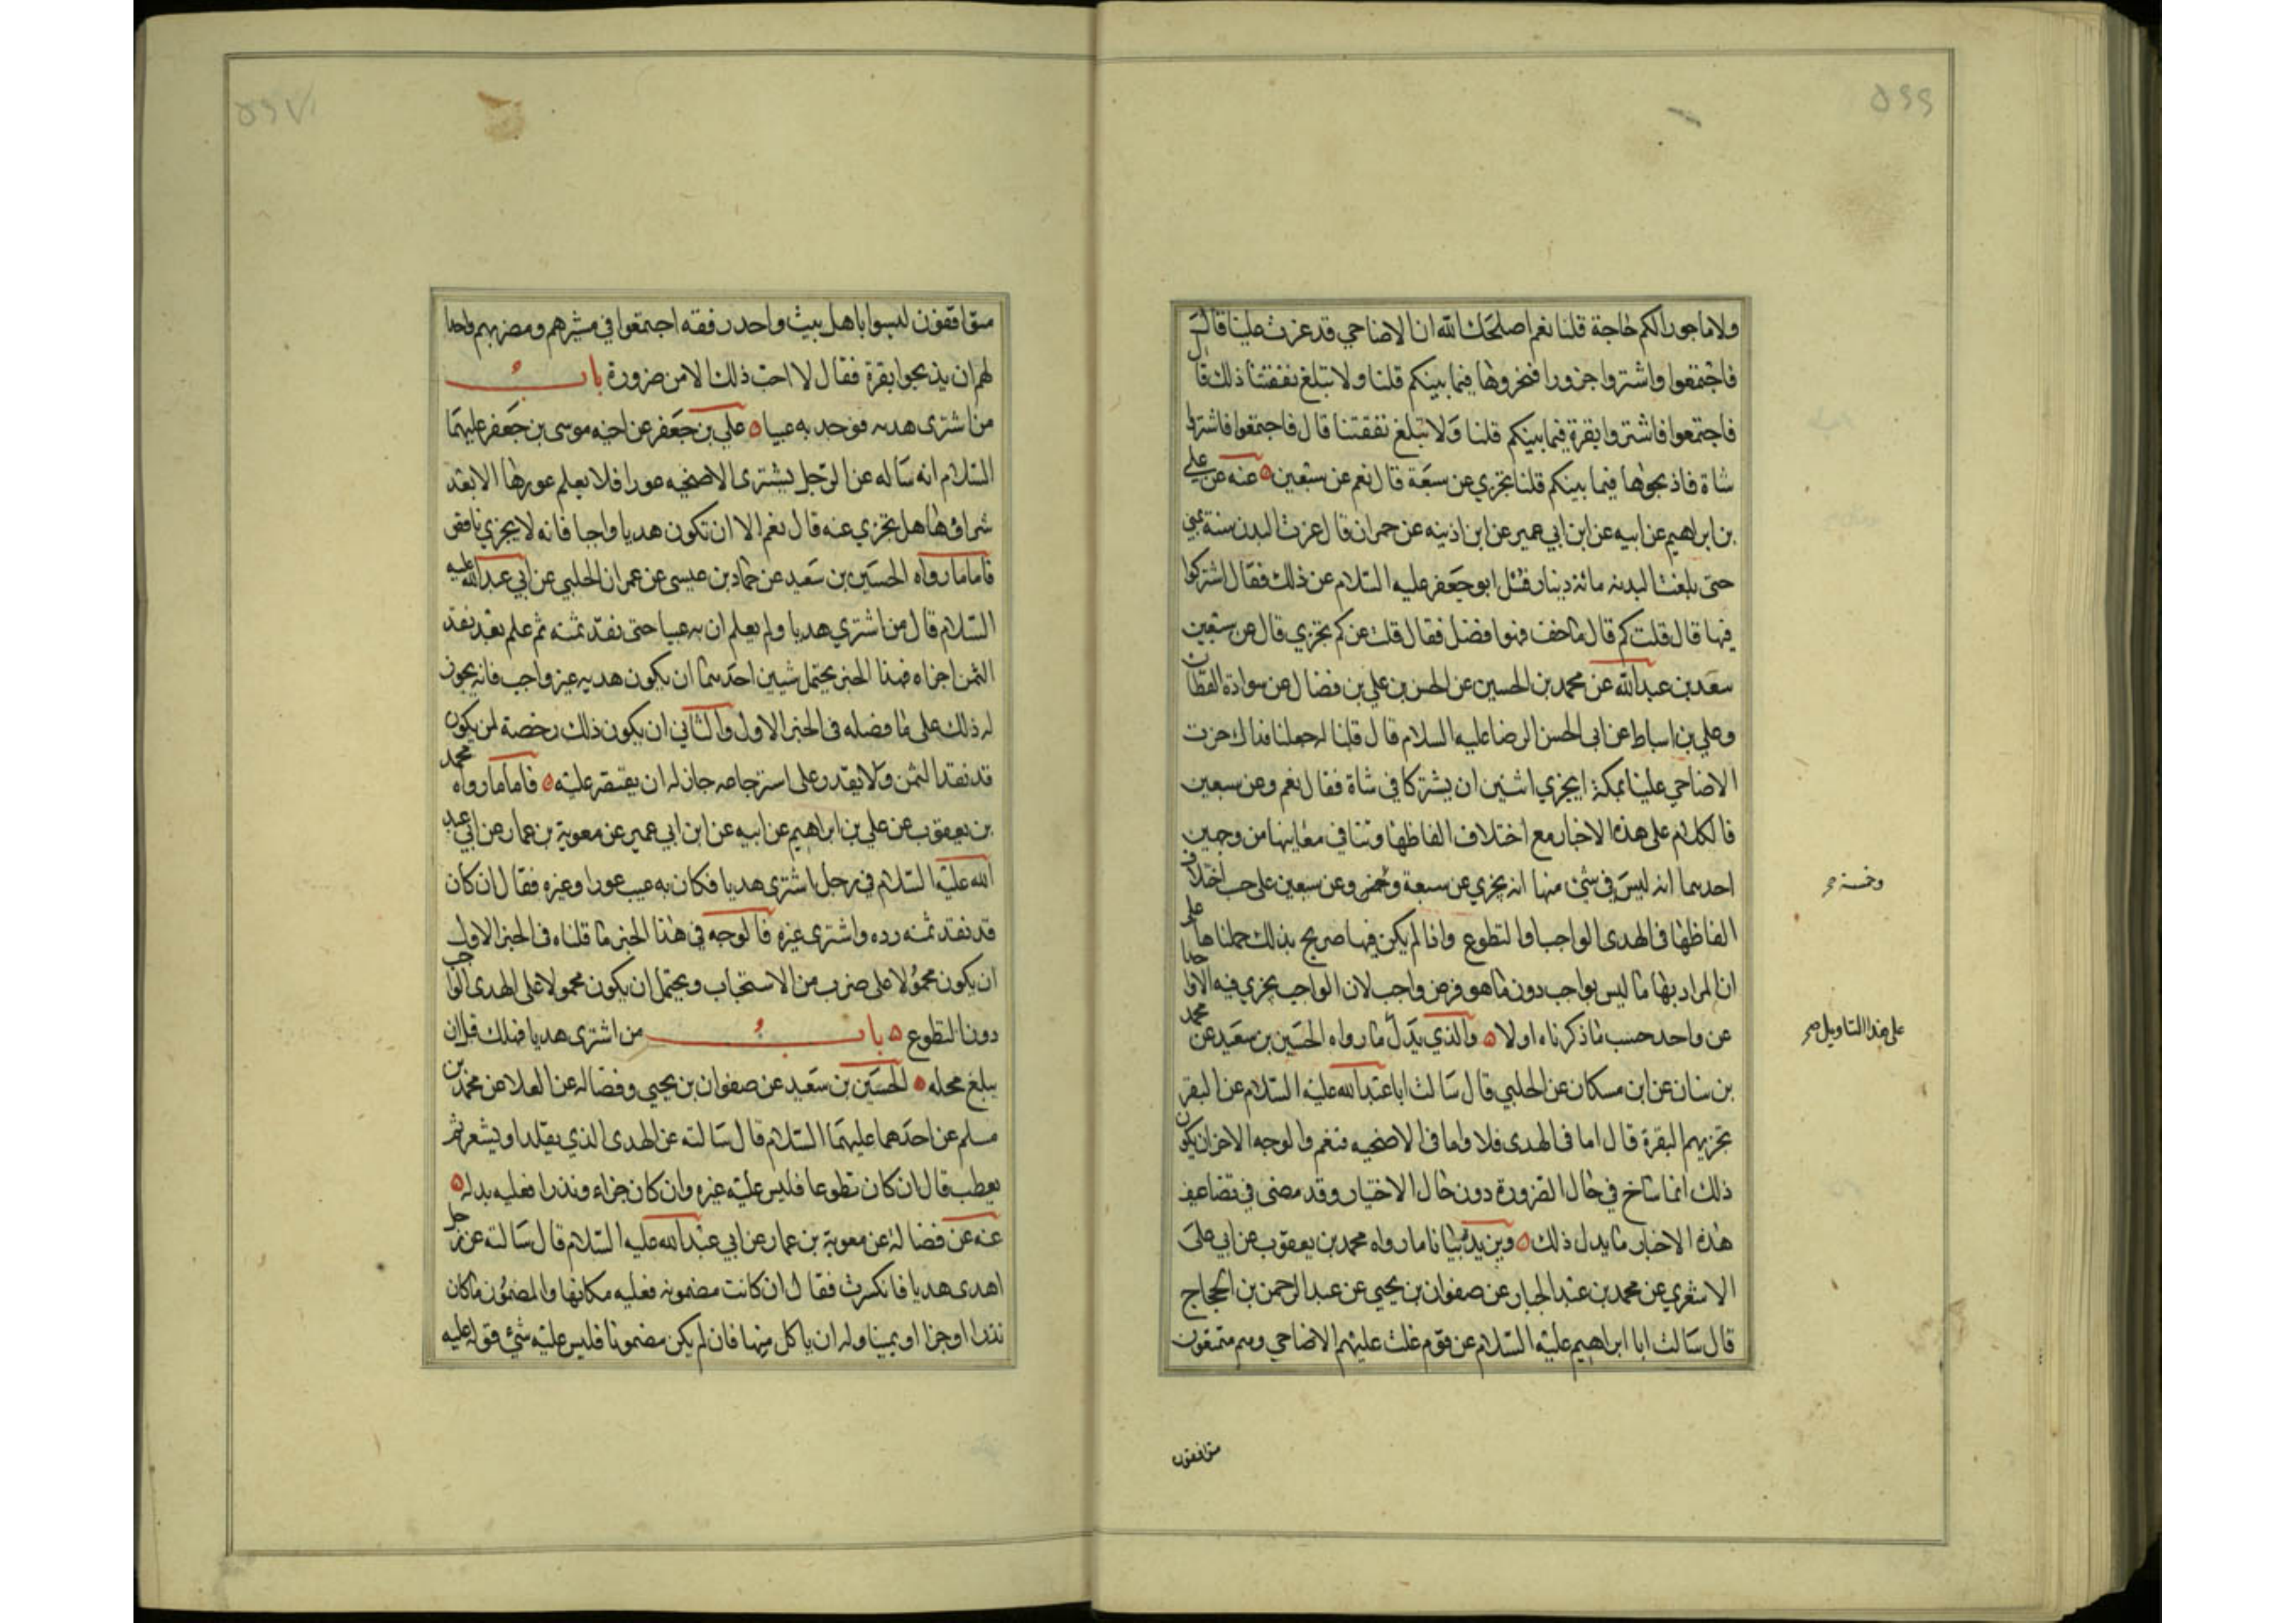 ٥٦٦
ولا ماجورا لكم حاجة قلنا نعم اصلحك الله ان الاضاحي قد عزت علينا قال
فاجتمعوا واشتروا جزورا فنحروها فيما بينكم قلنا ولا تبلغ نفقتنا ذلك قال
فاجتمعوا فاشتروا بقرة فيما بينكم قلنا ولا تبلغ نفقتنا قال فاجتمعوا فاشتروا
شاة فاذبحوها فيما بينكم قلنا تجزي عن سبعة قال نعم عن سبعين ه عنه عن علي
بن ابراهيم عن ابيه عن ابن ابي عمير عن ابن اذينه عن حمران قال عزت البدن سنة بمنى
حتى بلغت البدنه مائة دينار فسئل ابو جعفر عليه السلام عن ذلك فقال اشتركوا
فيها قال قلت كم قال ما خف فهو افضل فقال قلت عن كم تجزي قال عن سبعين
سعد بن عبد الله عن محمد بن الحسين عن الحسن بن علي بن فضال عن سوادة القطان
وعلي بن اسباط عن ابي الحسن الرضا عليه السلام قال قلنا له جعلنا فداك عزت
الاضاحي علينا بمكة ايجزي اثنين ان يشتركا في شاة فقال نعم وعن سبعين
فالكلام على هذه الاخبار مع اختلاف الفاظها وتنافي معانيها من وجهين
احدهما انه ليس في شئ منها انه يجزي عن سبعة وعن سبعين على حسب اختلاف
وخمسة صح
الفاظها في الهدى الواجب او التطوع واذا لم يكن فيها صريح بذلك حملناها على
ان المراد بها ما ليس بواجب دون ما هو فرض واجب لان الواجب يجزي فيه الا واحدا
عن واحد حسب ما ذكرناه اولا ه والذي يدل ما رواه الحسين بن سعيد عن محمد
على هذا التاويل صح
بن سنان عن ابن مسكان عن الحلبي قال سالت ابا عبد الله عليه السلام عن البقر
تجزيهم البقرة قال اما في الهدى فلا واما في الاضحيه فنعم والوجه الاخر ان يكون
ذلك انما ساغ في حال الضرورة دون حال الاختيار وقد مضى في تضاعيف
هذه الاخبار ما يدل ذلك ه ويزيده بيانا ما رواه محمد بن يعقوب عن ابي علي
الاشعري عن محمد بن عبد الجبار عن صفوان بن يحيي عن عبد الرحمن بن الحجاج
قال سالت ابا ابراهيم عليه السلام عن قوم غلت عليهم الاضاحي وهم متمتعون
متوافقون
٥٦٧
متوافقون ليسوا باهل بيت واحد رفقه اجتمعوا في مسيرهم ومضربهم واحد
لهم ان يذبحوا بقرة فقال لا احب ذلك الا من ضرورة باب
من اشترى هديه فوجد به عيبا ه علي بن جعفر عن اخيه موسى بن جعفر عليهما
السلام انه ساله عن الرجل يشترى الاضحيه عورا فلا يعلم عورها الا بعد
شرائها هل تجزي عنه قال نعم الا ان تكون هديا واجبا فانه لا يجزي ناقص
فاما ما رواه الحسين بن سعيد عن حماد بن عيسى عن عمران الحلبي عن ابي عبد الله عليه
السلام قال من اشتري هديا ولم يعلم ان به عيبا حتى نقد ثمنه ثم علم بعد نقد
الثمن اجزاه فهذا الخبر يحتمل شيئين احدهما ان يكون هديه غير واجب فانه يجوز
له ذلك على ما فضله في الخبر الاول والثاني ان يكون ذلك رخصة لمن يكون
قد نقد الثمن ولا يقدر على استرجاعه جاز له ان يقتصر عليه ه فاما ما رواه محمد
بن يعقوب عن علي بن ابراهيم عن ابيه عن ابن ابي عمير عن معوية بن عمار عن ابي عبد
الله عليه السلام في رجل اشترى هديا فكان به عيب عور او غيره فقال ان كان
قد نقد ثمنه رده واشترى غيره فالوجه في هذا الخبر ما قلناه في الخبر الاول
ان يكون محمولا على ضرب من الاستحباب ويحتمل ان يكون محمولا على الهدى الواجب
دون التطوع ه باب من اشترى هديا فهلك قبل ان
يبلغ محله ه الحسين بن سعيد عن صفوان بن يحيي وفضاله عن العلا عن محمد بن
مسلم عن احدهما عليهما السلام قال سالته عن الهدى الذي يقلد او يشعر ثم
يعطب قال ان كان تطوعا فليس عليه غيره وان كان جزاء ونذرا فعليه بدله ه
عنه عن فضالة عن معوية بن عمار عن ابي عبد الله عليه السلام قال سالته عن رجل
اهدى هديا فانكسرت فقال ان كانت مضمونه فعليه مكانها والمضمون ما كان
نذرا او جزا او يمينا وله ان ياكل منها فان لم يكن مضمونا فليس عليه شئ قوله عليه